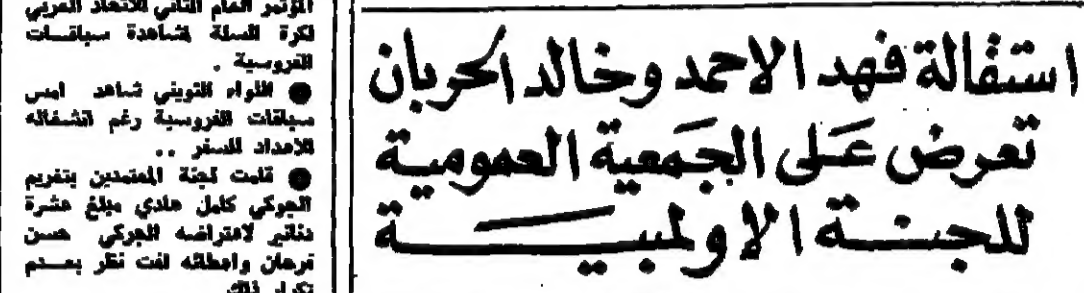 استقالة فهد الاحمد وخالد الحربان
تعرض عَلى الجَمعية العمومية
للجنة الاولمبية
المؤتمر العام الثاني للاتحاد العربي
لكرة السلة لمشاهدة سباقات
الفروسية .
● اللواء التويني شاهد امس
سباقات الفروسية رغم انشغاله
للاعداد للسفر ..
● قامت لجنة المعتمدين بتغريم
الجوكي كامل هادي مبلغ عشرة
دنانير لاعتراضه الجوكي حسن
فرهان واعطائه لفت نظر بعدم
تكرار ذلك